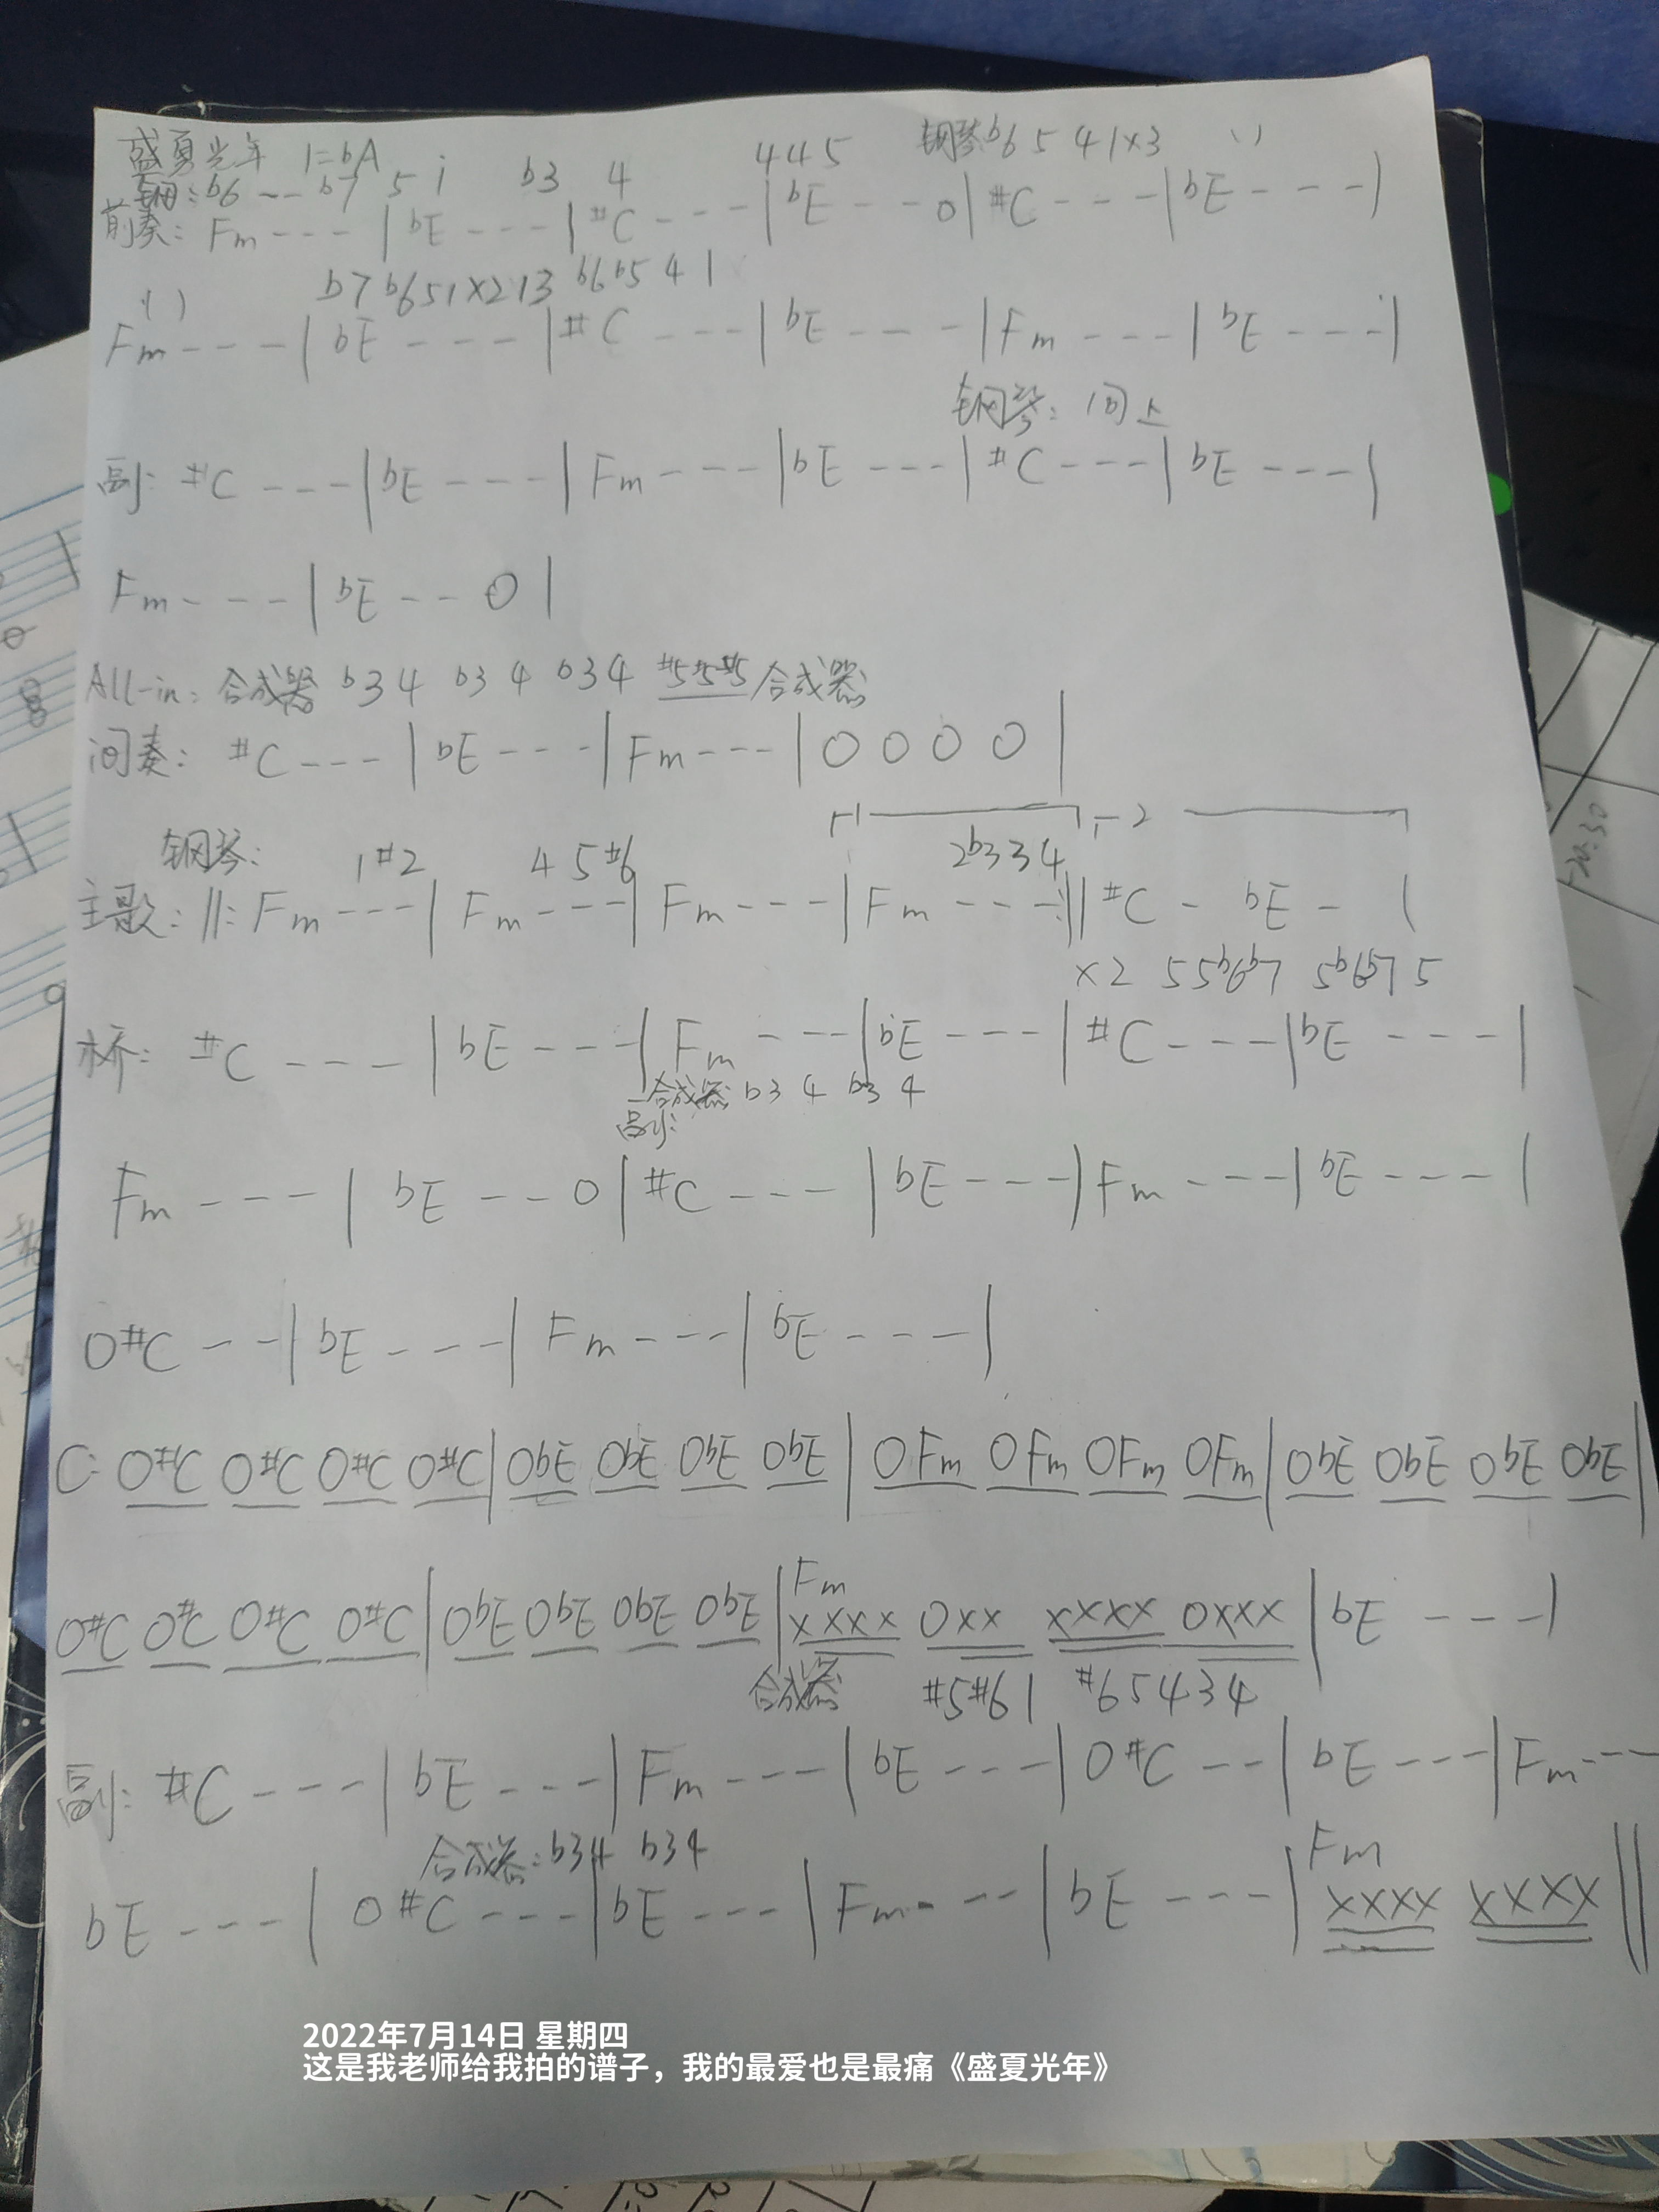 盛夏光年 1=bA
钢: b6 -- b7 5 i b3 4 445 钢琴b6 5 4 1x3 ( )
前奏: Fm --- | bE --- | #C --- | bE -- 0 | #C --- | bE --- |
( ) b7 b6 5 1 x2 13 b6 b5 4 1
Fm --- | bE --- | #C --- | bE --- | Fm --- | bE --- |
钢琴: 同上
副: #C --- | bE --- | Fm --- | bE --- | #C --- | bE --- |
Fm --- | bE -- 0 |
All-in: 合成器 b3 4 b3 4 b3 4 #5#5#5 合成器
间奏: #C --- | bE --- | Fm --- | 0 0 0 0 |
钢琴: 1 #2 4 5 #6 1 2b3 3 4 2
主歌: ‖: Fm --- | Fm --- | Fm --- | Fm --- :‖ #C - bE - |
x2 5 5b6b7 5b6b7 5
桥: #C --- | bE --- | Fm --- | bE --- | #C --- | bE --- |
合成器 b3 4 b3 4
副:
Fm --- | bE -- 0 | #C --- | bE --- | Fm --- | bE --- |
0#C -- | bE --- | Fm --- | bE --- |
C: 0#C 0#C 0#C 0#C | 0bE 0bE 0bE 0bE | 0Fm 0Fm 0Fm 0Fm | 0bE 0bE 0bE 0bE |
Fm
0#C 0#C 0#C 0#C | 0bE 0bE 0bE 0bE | xxxx 0xx xxxx 0xxx | bE --- |
合成器 #5#6 1 #6 5 4 3 4
副: #C --- | bE --- | Fm --- | bE --- | 0#C -- | bE --- | Fm ---
合成器: b34 b34 Fm
bE --- | 0#C --- | bE --- | Fm --- | bE --- | xxxx xxxx ‖
2022年7月14日 星期四
这是我老师给我拍的谱子，我的最爱也是最痛《盛夏光年》